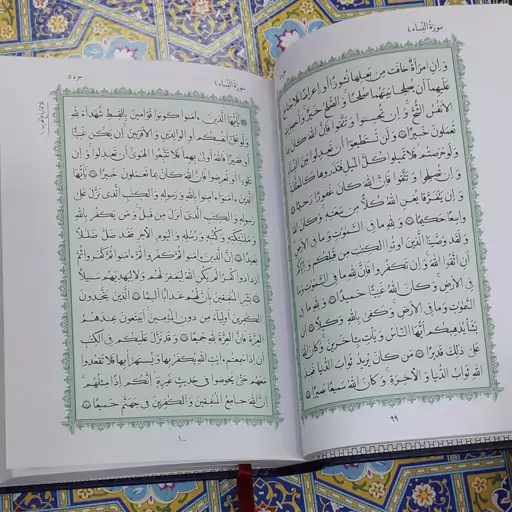 سورة النساء ٤
وَإِنِ امْرَأَةٌ خَافَتْ مِنْ بَعْلِهَا نُشُوزًا أَوْ إِعْرَاضًا فَلَا جُنَاحَ
عَلَيْهِمَا أَنْ يُصْلِحَا بَيْنَهُمَا صُلْحًا ۚ وَالصُّلْحُ خَيْرٌ ۗ وَأُحْضِرَتِ
الْأَنْفُسُ الشُّحَّ ۚ وَإِنْ تُحْسِنُوا وَتَتَّقُوا فَإِنَّ اللَّهَ كَانَ بِمَا
تَعْمَلُونَ خَبِيرًا ۝ وَلَنْ تَسْتَطِيعُوا أَنْ تَعْدِلُوا بَيْنَ النِّسَاءِ
وَلَوْ حَرَصْتُمْ فَلَا تَمِيلُوا كُلَّ الْمَيْلِ فَتَذَرُوهَا كَالْمُعَلَّقَةِ
وَإِنْ تُصْلِحُوا وَتَتَّقُوا فَإِنَّ اللَّهَ كَانَ غَفُورًا رَحِيمًا ۝
وَإِنْ يَتَفَرَّقَا يُغْنِ اللَّهُ كُلًّا مِنْ سَعَتِهِ ۚ وَكَانَ اللَّهُ
وَاسِعًا حَكِيمًا ۝ وَلِلَّهِ مَا فِي السَّمٰوَاتِ وَمَا فِي الْأَرْضِ
وَلَقَدْ وَصَّيْنَا الَّذِينَ أُوتُوا الْكِتٰبَ مِنْ قَبْلِكُمْ وَإِيَّاكُمْ
أَنِ اتَّقُوا اللَّهَ ۚ وَإِنْ تَكْفُرُوا فَإِنَّ لِلَّهِ مَا فِي السَّمٰوَاتِ وَمَا
فِي الْأَرْضِ ۚ وَكَانَ اللَّهُ غَنِيًّا حَمِيدًا ۝ وَلِلَّهِ مَا فِي
السَّمٰوَاتِ وَمَا فِي الْأَرْضِ ۚ وَكَفَى بِاللَّهِ وَكِيلًا ۝ إِنْ
يَشَأْ يُذْهِبْكُمْ أَيُّهَا النَّاسُ وَيَأْتِ بِآخَرِينَ ۚ وَكَانَ اللَّهُ
عَلَى ذٰلِكَ قَدِيرًا ۝ مَنْ كَانَ يُرِيدُ ثَوَابَ الدُّنْيَا فَعِنْدَ اللَّهِ
ثَوَابُ الدُّنْيَا وَالْآخِرَةِ ۚ وَكَانَ اللَّهُ سَمِيعًا بَصِيرًا ۝
٩٩
سورة النساء ٤
جزء ٥
يٰأَيُّهَا الَّذِينَ آمَنُوا كُونُوا قَوَّامِينَ بِالْقِسْطِ شُهَدَاءَ لِلَّهِ
وَلَوْ عَلَى أَنْفُسِكُمْ أَوِ الْوَالِدَيْنِ وَالْأَقْرَبِينَ ۚ إِنْ يَكُنْ غَنِيًّا
أَوْ فَقِيرًا فَاللَّهُ أَوْلَى بِهِمَا ۖ فَلَا تَتَّبِعُوا الْهَوَى أَنْ تَعْدِلُوا ۚ وَإِنْ
تَلْوُوا أَوْ تُعْرِضُوا فَإِنَّ اللَّهَ كَانَ بِمَا تَعْمَلُونَ خَبِيرًا ۝ يٰأَيُّهَا
الَّذِينَ آمَنُوا آمِنُوا بِاللَّهِ وَرَسُولِهِ وَالْكِتٰبِ الَّذِي نَزَّلَ عَلَى
رَسُولِهِ وَالْكِتٰبِ الَّذِي أَنْزَلَ مِنْ قَبْلُ ۚ وَمَنْ يَكْفُرْ بِاللَّهِ
وَمَلٰئِكَتِهِ وَكُتُبِهِ وَرُسُلِهِ وَالْيَوْمِ الْآخِرِ فَقَدْ ضَلَّ ضَلٰلًا
بَعِيدًا ۝ إِنَّ الَّذِينَ آمَنُوا ثُمَّ كَفَرُوا ثُمَّ آمَنُوا ثُمَّ كَفَرُوا ثُمَّ
ازْدَادُوا كُفْرًا لَمْ يَكُنِ اللَّهُ لِيَغْفِرَ لَهُمْ وَلَا لِيَهْدِيَهُمْ سَبِيلًا
۝ بَشِّرِ الْمُنٰفِقِينَ بِأَنَّ لَهُمْ عَذَابًا أَلِيمًا ۝ الَّذِينَ يَتَّخِذُونَ
الْكٰفِرِينَ أَوْلِيَاءَ مِنْ دُونِ الْمُؤْمِنِينَ ۚ أَيَبْتَغُونَ عِنْدَهُمُ
الْعِزَّةَ فَإِنَّ الْعِزَّةَ لِلَّهِ جَمِيعًا ۝ وَقَدْ نَزَّلَ عَلَيْكُمْ فِي الْكِتٰبِ
أَنْ إِذَا سَمِعْتُمْ آيَاتِ اللَّهِ يُكْفَرُ بِهَا وَيُسْتَهْزَأُ بِهَا فَلَا تَقْعُدُوا
مَعَهُمْ حَتَّى يَخُوضُوا فِي حَدِيثٍ غَيْرِهِ ۚ إِنَّكُمْ إِذًا مِثْلُهُمْ
إِنَّ اللَّهَ جَامِعُ الْمُنٰفِقِينَ وَالْكٰفِرِينَ فِي جَهَنَّمَ جَمِيعًا ۝
١٠٠